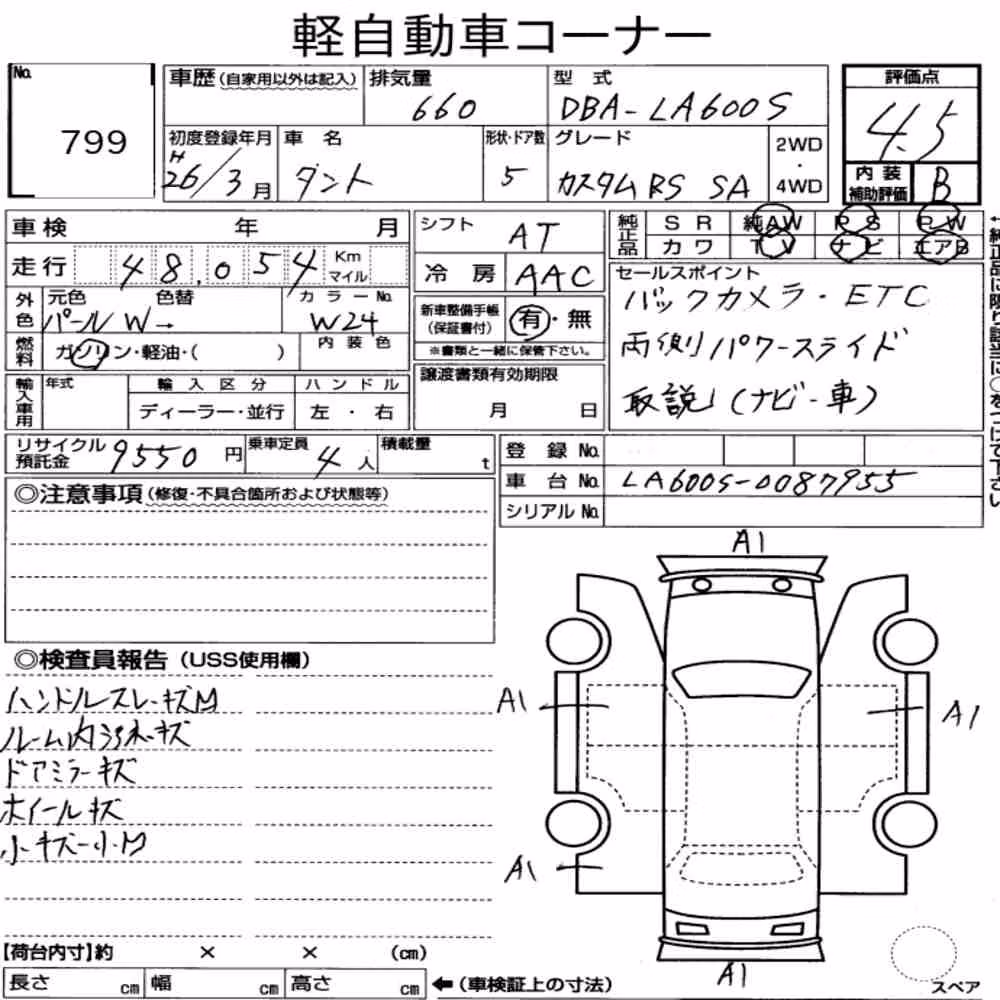 軽自動車コーナー
No. 799
車歴(自家用以外は記入) 排気量 660 型式 DBA-LA600S
評価点 4.5
初度登録年月 H26/3月 車名 タント 形状・ドア数 5 グレード カスタムRS SA 2WD・4WD
内装補助評価 B
車検 年 月
走行 48,054 Km マイル
シフト AT
冷房 AAC
純正品 SR 純AW PS PW
カワ TV ナビ エアB
←純正品に限り該当に○をつけて下さい
外色 元色 色替 カラーNo.
パールW→ W24
燃料 ガソリン・軽油・( ) 内装色
新車整備手帳(保証書付) 有・無
※書類と一緒に保管下さい。
セールスポイント
バックカメラ・ETC
両側パワースライド
取説(ナビ・車)
輸入車用 年式 輸入区分 ハンドル
ディーラー・並行 左・右
譲渡書類有効期限
月 日
リサイクル預託金 9550円 乗車定員 4人 積載量 t
登録No.
車台No. LA600S-0087955
シリアルNo.
◎注意事項(修復・不具合箇所および状態等)
◎検査員報告(USS使用欄)
ハンドルスレ・キズM
ルーム内汚れ・キズ
ドアミラーキズ
ホイールキズ
小キズ-小M
A1
A1
A1
A1
A1
スペア
【荷台内寸】約 × × (cm)
長さ cm 幅 cm 高さ cm ←(車検証上の寸法)